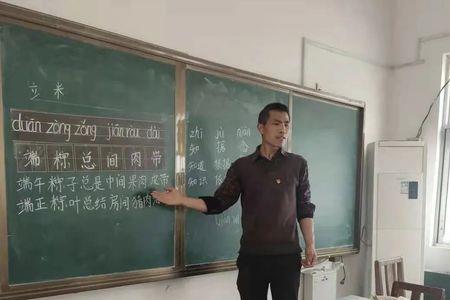 立 米
duān zòng zǒng jiān ròu dài
端 粽 总 间 肉 带
端午 粽子 总是 中间 果肉 皮带
端正 粽叶 总结 房间 猪肉
zhī jù
知
知道 根据
知识